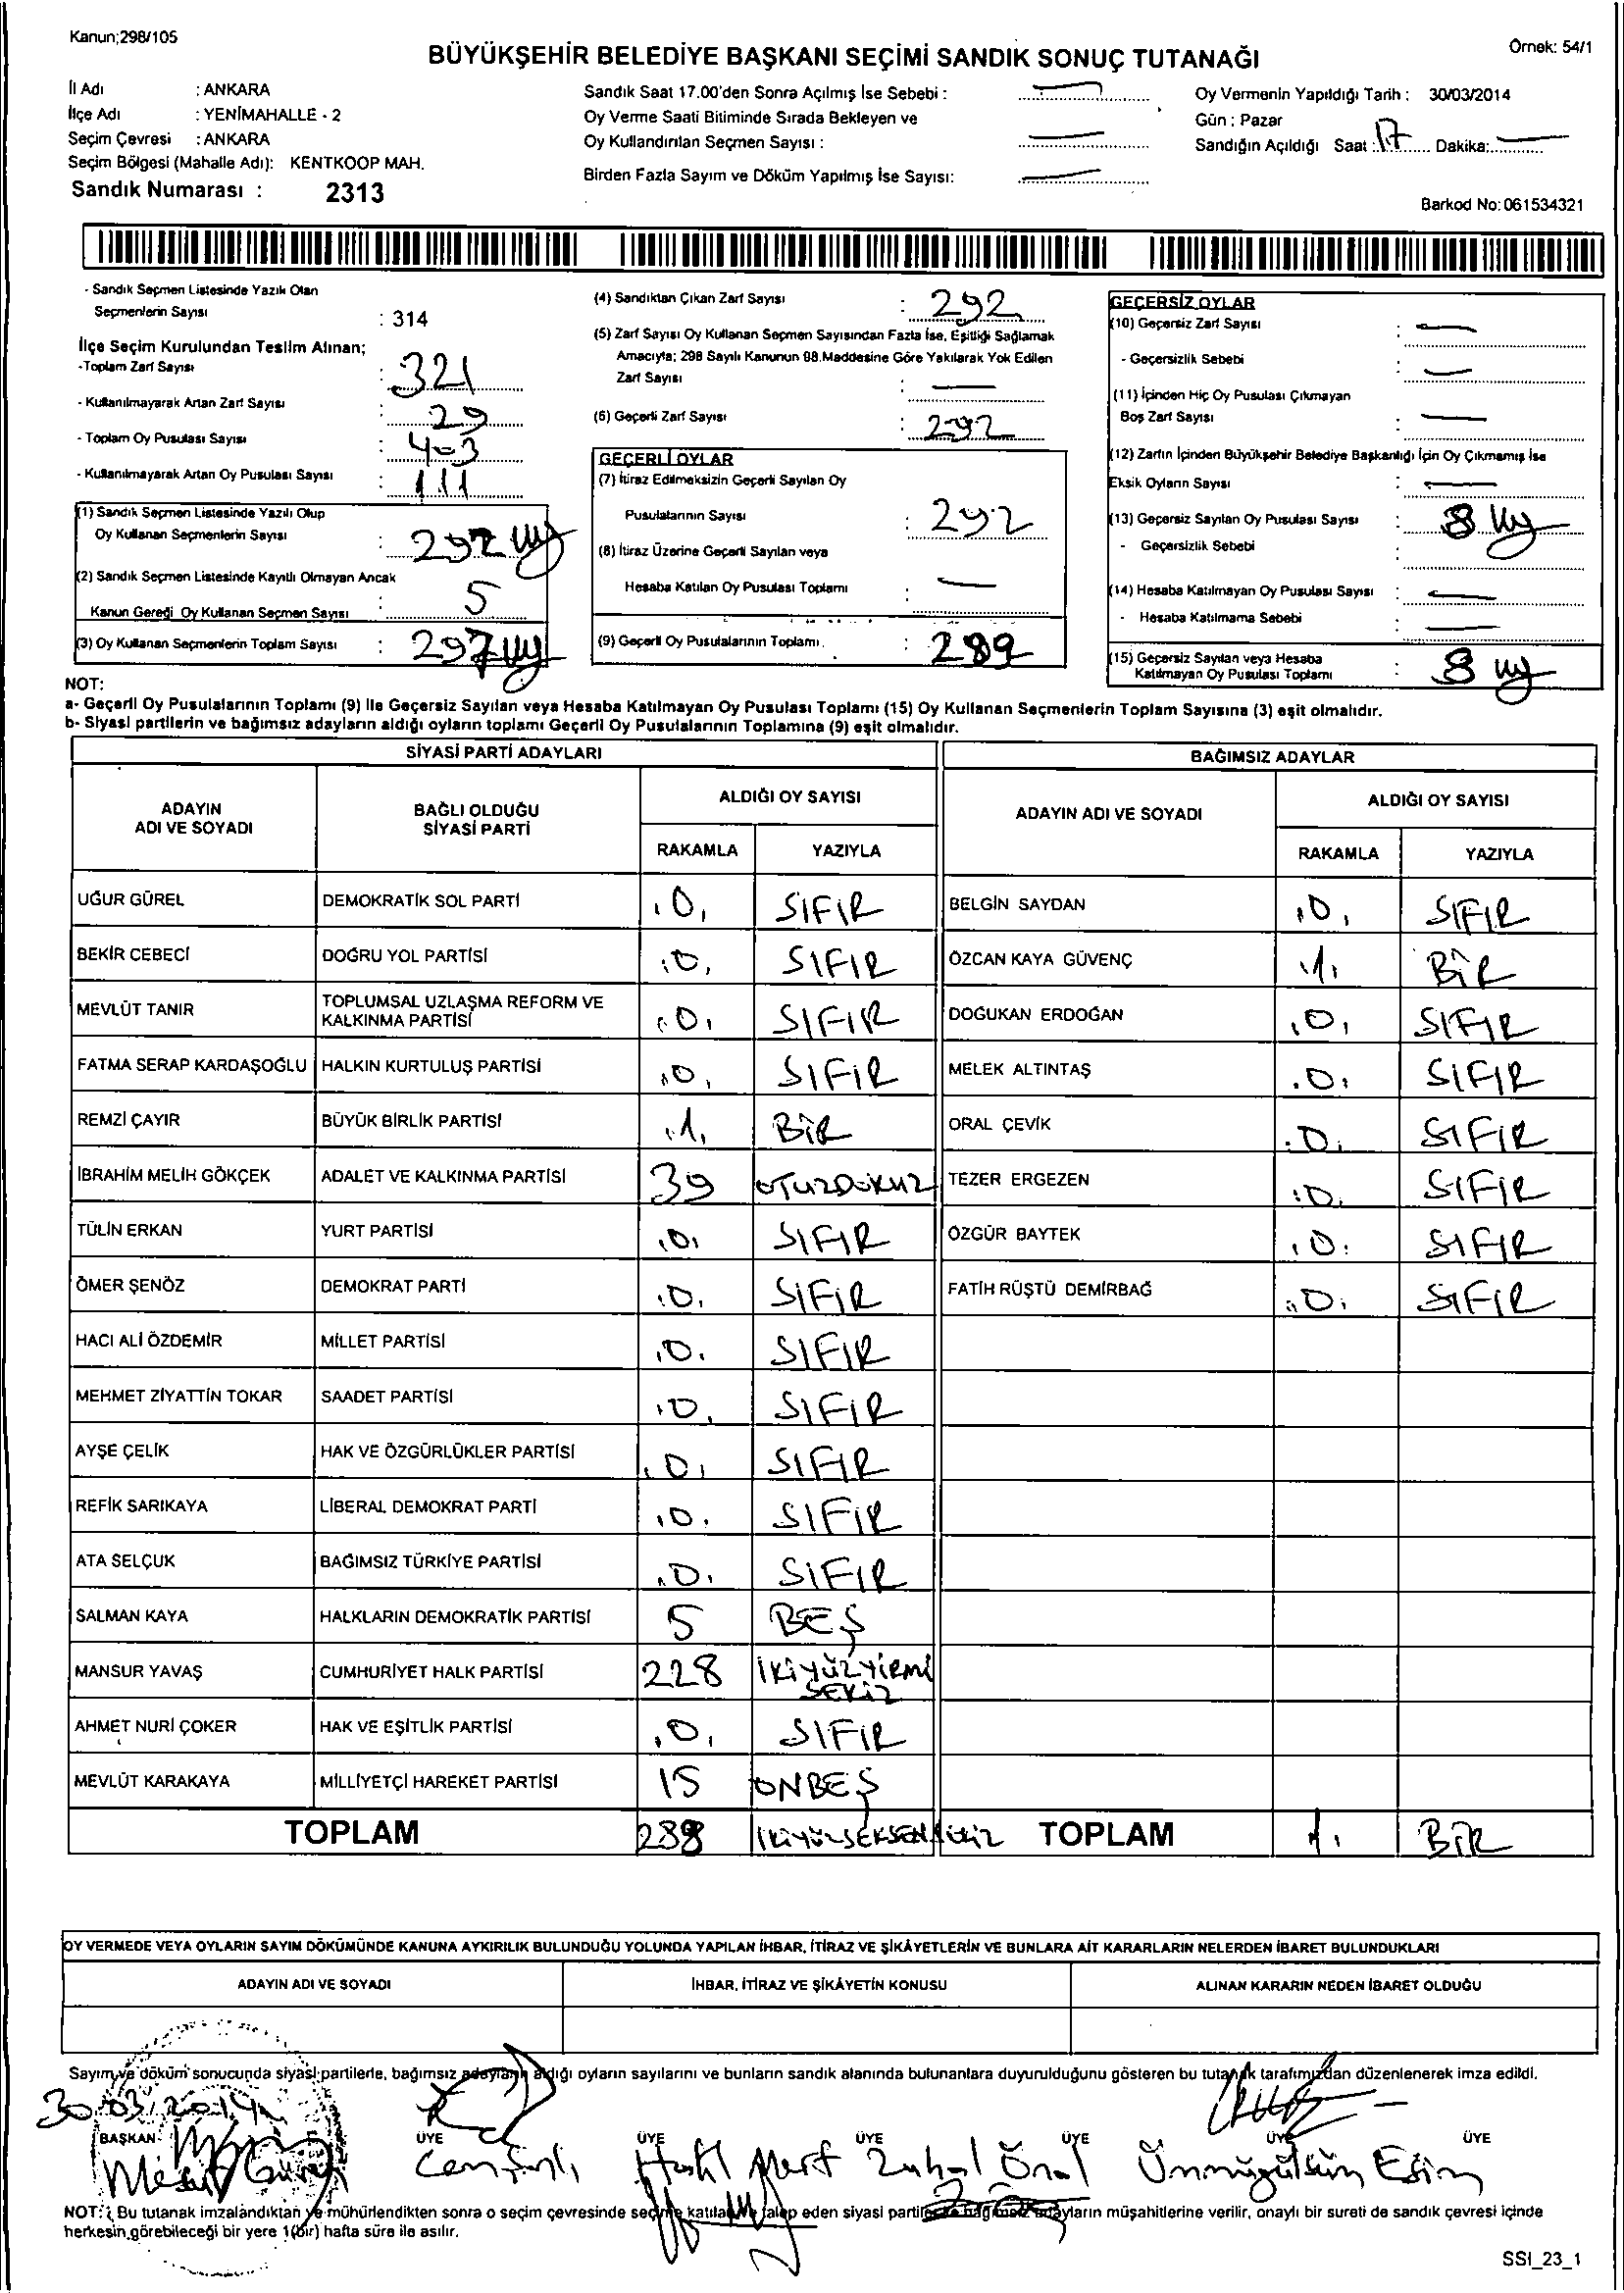 Kanun;298/105
Örnek: 54/1
BÜYÜKŞEHİR BELEDİYE BAŞKANI SEÇİMİ SANDIK SONUÇ TUTANAĞI
İl Adı : ANKARA
İlçe Adı : YENİMAHALLE - 2
Seçim Çevresi : ANKARA
Seçim Bölgesi (Mahalle Adı): KENTKOOP MAH.
Sandık Numarası : 2313
Sandık Saat 17.00'den Sonra Açılmış İse Sebebi :
Oy Verme Saati Bitiminde Sırada Bekleyen ve
Oy Kullandırılan Seçmen Sayısı :
Birden Fazla Sayım ve Döküm Yapılmış İse Sayısı:
Oy Vermenin Yapıldığı Tarih : 30/03/2014
Gün : Pazar
Sandığın Açıldığı Saat : 17 Dakika:
Barkod No: 061534321
- Sandık Seçmen Listesinde Yazılı Olan
Seçmenlerin Sayısı : 314
İlçe Seçim Kurulundan Teslim Alınan;
-Toplam Zarf Sayısı : 321
- Kullanılmayarak Artan Zarf Sayısı : 29
- Toplam Oy Pusulası Sayısı : 403
- Kullanılmayarak Artan Oy Pusulası Sayısı : 111
(1) Sandık Seçmen Listesinde Yazılı Olup
Oy Kullanan Seçmenlerin Sayısı : 292
(2) Sandık Seçmen Listesinde Kayıtlı Olmayan Ancak
Kanun Gereği Oy Kullanan Seçmen Sayısı : 5
(3) Oy Kullanan Seçmenlerin Toplam Sayısı : 297
(4) Sandıktan Çıkan Zarf Sayısı : 292
(5) Zarf Sayısı Oy Kullanan Seçmen Sayısından Fazla İse, Eşitliği Sağlamak
Amacıyla; 298 Sayılı Kanunun 98.Maddesine Göre Yakılarak Yok Edilen
Zarf Sayısı :
(6) Geçerli Zarf Sayısı : 292
GEÇERLİ OYLAR
(7) İtiraz Edilmeksizin Geçerli Sayılan Oy
Pusulalarının Sayısı : 292
(8) İtiraz Üzerine Geçerli Sayılan veya
Hesaba Katılan Oy Pusulası Toplamı :
(9) Geçerli Oy Pusulalarının Toplamı : 289
GEÇERSİZ OYLAR
(10) Geçersiz Zarf Sayısı :
- Geçersizlik Sebebi :
(11) İçinden Hiç Oy Pusulası Çıkmayan
Boş Zarf Sayısı :
(12) Zarfın İçinden Büyükşehir Belediye Başkanlığı İçin Oy Çıkmamış İse
Eksik Oyların Sayısı :
(13) Geçersiz Sayılan Oy Pusulası Sayısı : 8
- Geçersizlik Sebebi :
(14) Hesaba Katılmayan Oy Pusulası Sayısı :
- Hesaba Katılmama Sebebi :
(15) Geçersiz Sayılan veya Hesaba
Katılmayan Oy Pusulası Toplamı : 8
NOT:
a- Geçerli Oy Pusulalarının Toplamı (9) ile Geçersiz Sayılan veya Hesaba Katılmayan Oy Pusulası Toplamı (15) Oy Kullanan Seçmenlerin Toplam Sayısına (3) eşit olmalıdır.
b- Siyasi partilerin ve bağımsız adayların aldığı oyların toplamı Geçerli Oy Pusulalarının Toplamına (9) eşit olmalıdır.
SİYASİ PARTİ ADAYLARI
ADAYIN ADI VE SOYADI
BAĞLI OLDUĞU SİYASİ PARTİ
ALDIĞI OY SAYISI
RAKAMLA YAZIYLA
UĞUR GÜREL DEMOKRATİK SOL PARTİ 0 SIFIR
BEKİR CEBECİ DOĞRU YOL PARTİSİ 0 SIFIR
MEVLÜT TANIR TOPLUMSAL UZLAŞMA REFORM VE KALKINMA PARTİSİ 0 SIFIR
FATMA SERAP KARDAŞOĞLU HALKIN KURTULUŞ PARTİSİ 0 SIFIR
REMZİ ÇAYIR BÜYÜK BİRLİK PARTİSİ 1 BİR
İBRAHİM MELİH GÖKÇEK ADALET VE KALKINMA PARTİSİ 39 OTUZDOKUZ
TÜLİN ERKAN YURT PARTİSİ 0 SIFIR
ÖMER ŞENÖZ DEMOKRAT PARTİ 0 SIFIR
HACI ALİ ÖZDEMİR MİLLET PARTİSİ 0 SIFIR
MEHMET ZİYATTİN TOKAR SAADET PARTİSİ 0 SIFIR
AYŞE ÇELİK HAK VE ÖZGÜRLÜKLER PARTİSİ 0 SIFIR
REFİK SARIKAYA LİBERAL DEMOKRAT PARTİ 0 SIFIR
ATA SELÇUK BAĞIMSIZ TÜRKİYE PARTİSİ 0 SIFIR
SALMAN KAYA HALKLARIN DEMOKRATİK PARTİSİ 5 BEŞ
MANSUR YAVAŞ CUMHURİYET HALK PARTİSİ 228 İKİYÜZYİRMİ SEKİZ
AHMET NURİ ÇOKER HAK VE EŞİTLİK PARTİSİ 0 SIFIR
MEVLÜT KARAKAYA MİLLİYETÇİ HAREKET PARTİSİ 15 ONBEŞ
TOPLAM 288 İKİYÜZSEKSENSEKİZ
BAĞIMSIZ ADAYLAR
ADAYIN ADI VE SOYADI
ALDIĞI OY SAYISI
RAKAMLA YAZIYLA
BELGİN SAYDAN 0 SIFIR
ÖZCAN KAYA GÜVENÇ 1 BİR
DOĞUKAN ERDOĞAN 0 SIFIR
MELEK ALTINTAŞ 0 SIFIR
ORAL ÇEVİK 0 SIFIR
TEZER ERGEZEN 0 SIFIR
ÖZGÜR BAYTEK 0 SIFIR
FATİH RÜŞTÜ DEMİRBAĞ 0 SIFIR
TOPLAM 1 BİR
OY VERMEDE VEYA OYLARIN SAYIM DÖKÜMÜNDE KANUNA AYKIRILIK BULUNDUĞU YOLUNDA YAPILAN İHBAR, İTİRAZ VE ŞİKÂYETLERİN VE BUNLARA AİT KARARLARIN NELERDEN İBARET BULUNDUKLARI
ADAYIN ADI VE SOYADI İHBAR, İTİRAZ VE ŞİKÂYETİN KONUSU ALINAN KARARIN NEDEN İBARET OLDUĞU
Sayım ve döküm sonucunda siyasi partilerle, bağımsız adayların aldığı oyların sayılarını ve bunların sandık alanında bulunanlara duyurulduğunu gösteren bu tutanak tarafımızdan düzenlenerek imza edildi.
30.03.2014
BAŞKAN ÜYE ÜYE ÜYE ÜYE ÜYE ÜYE
Mesut Mert Zuhal Önal Ümmügülsüm Esin
NOT: Bu tutanak imzalandıktan ve mühürlendikten sonra o seçim çevresinde seçime katılan ve talep eden siyasi partilerle bağımsız adayların müşahitlerine verilir, onaylı bir sureti de sandık çevresi içinde
herkesin görebileceği bir yere 1(bir) hafta süre ile asılır.
SSI_23_1